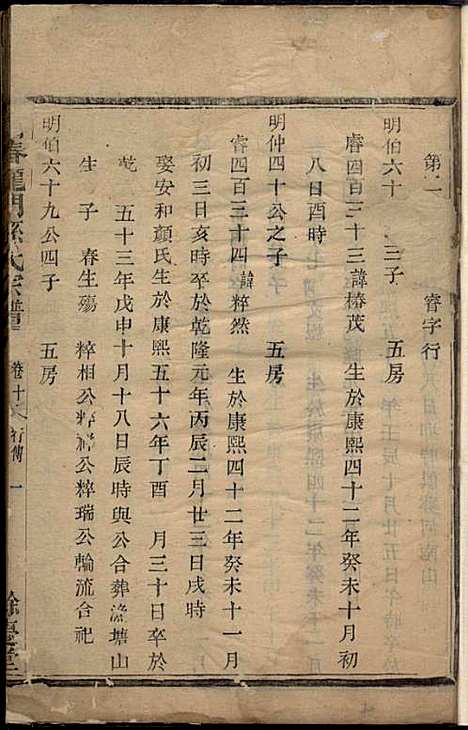 第二　睿字行
明伯六十　三子　五房
睿四百三十三諱椿茂　生於康熙四十二年癸未十月初
八日酉時
明仲四十公之子　五房
睿四百三十四諱粹然　生於康熙四十二年癸未十一月
初三日亥時卒於乾隆元年丙辰二月廿三日戌時
娶安和顏氏生於康熙五十六年丁酉　月三十日卒於
乾　五十三年戊申十月十八日辰時與公合葬漁塘山
生　子　春生殤　粹相公粹　公粹瑞公輪流合祀
明伯六十九公四子　五房
春龍門孫氏宗譜　卷十　行傳　一　餘慶堂